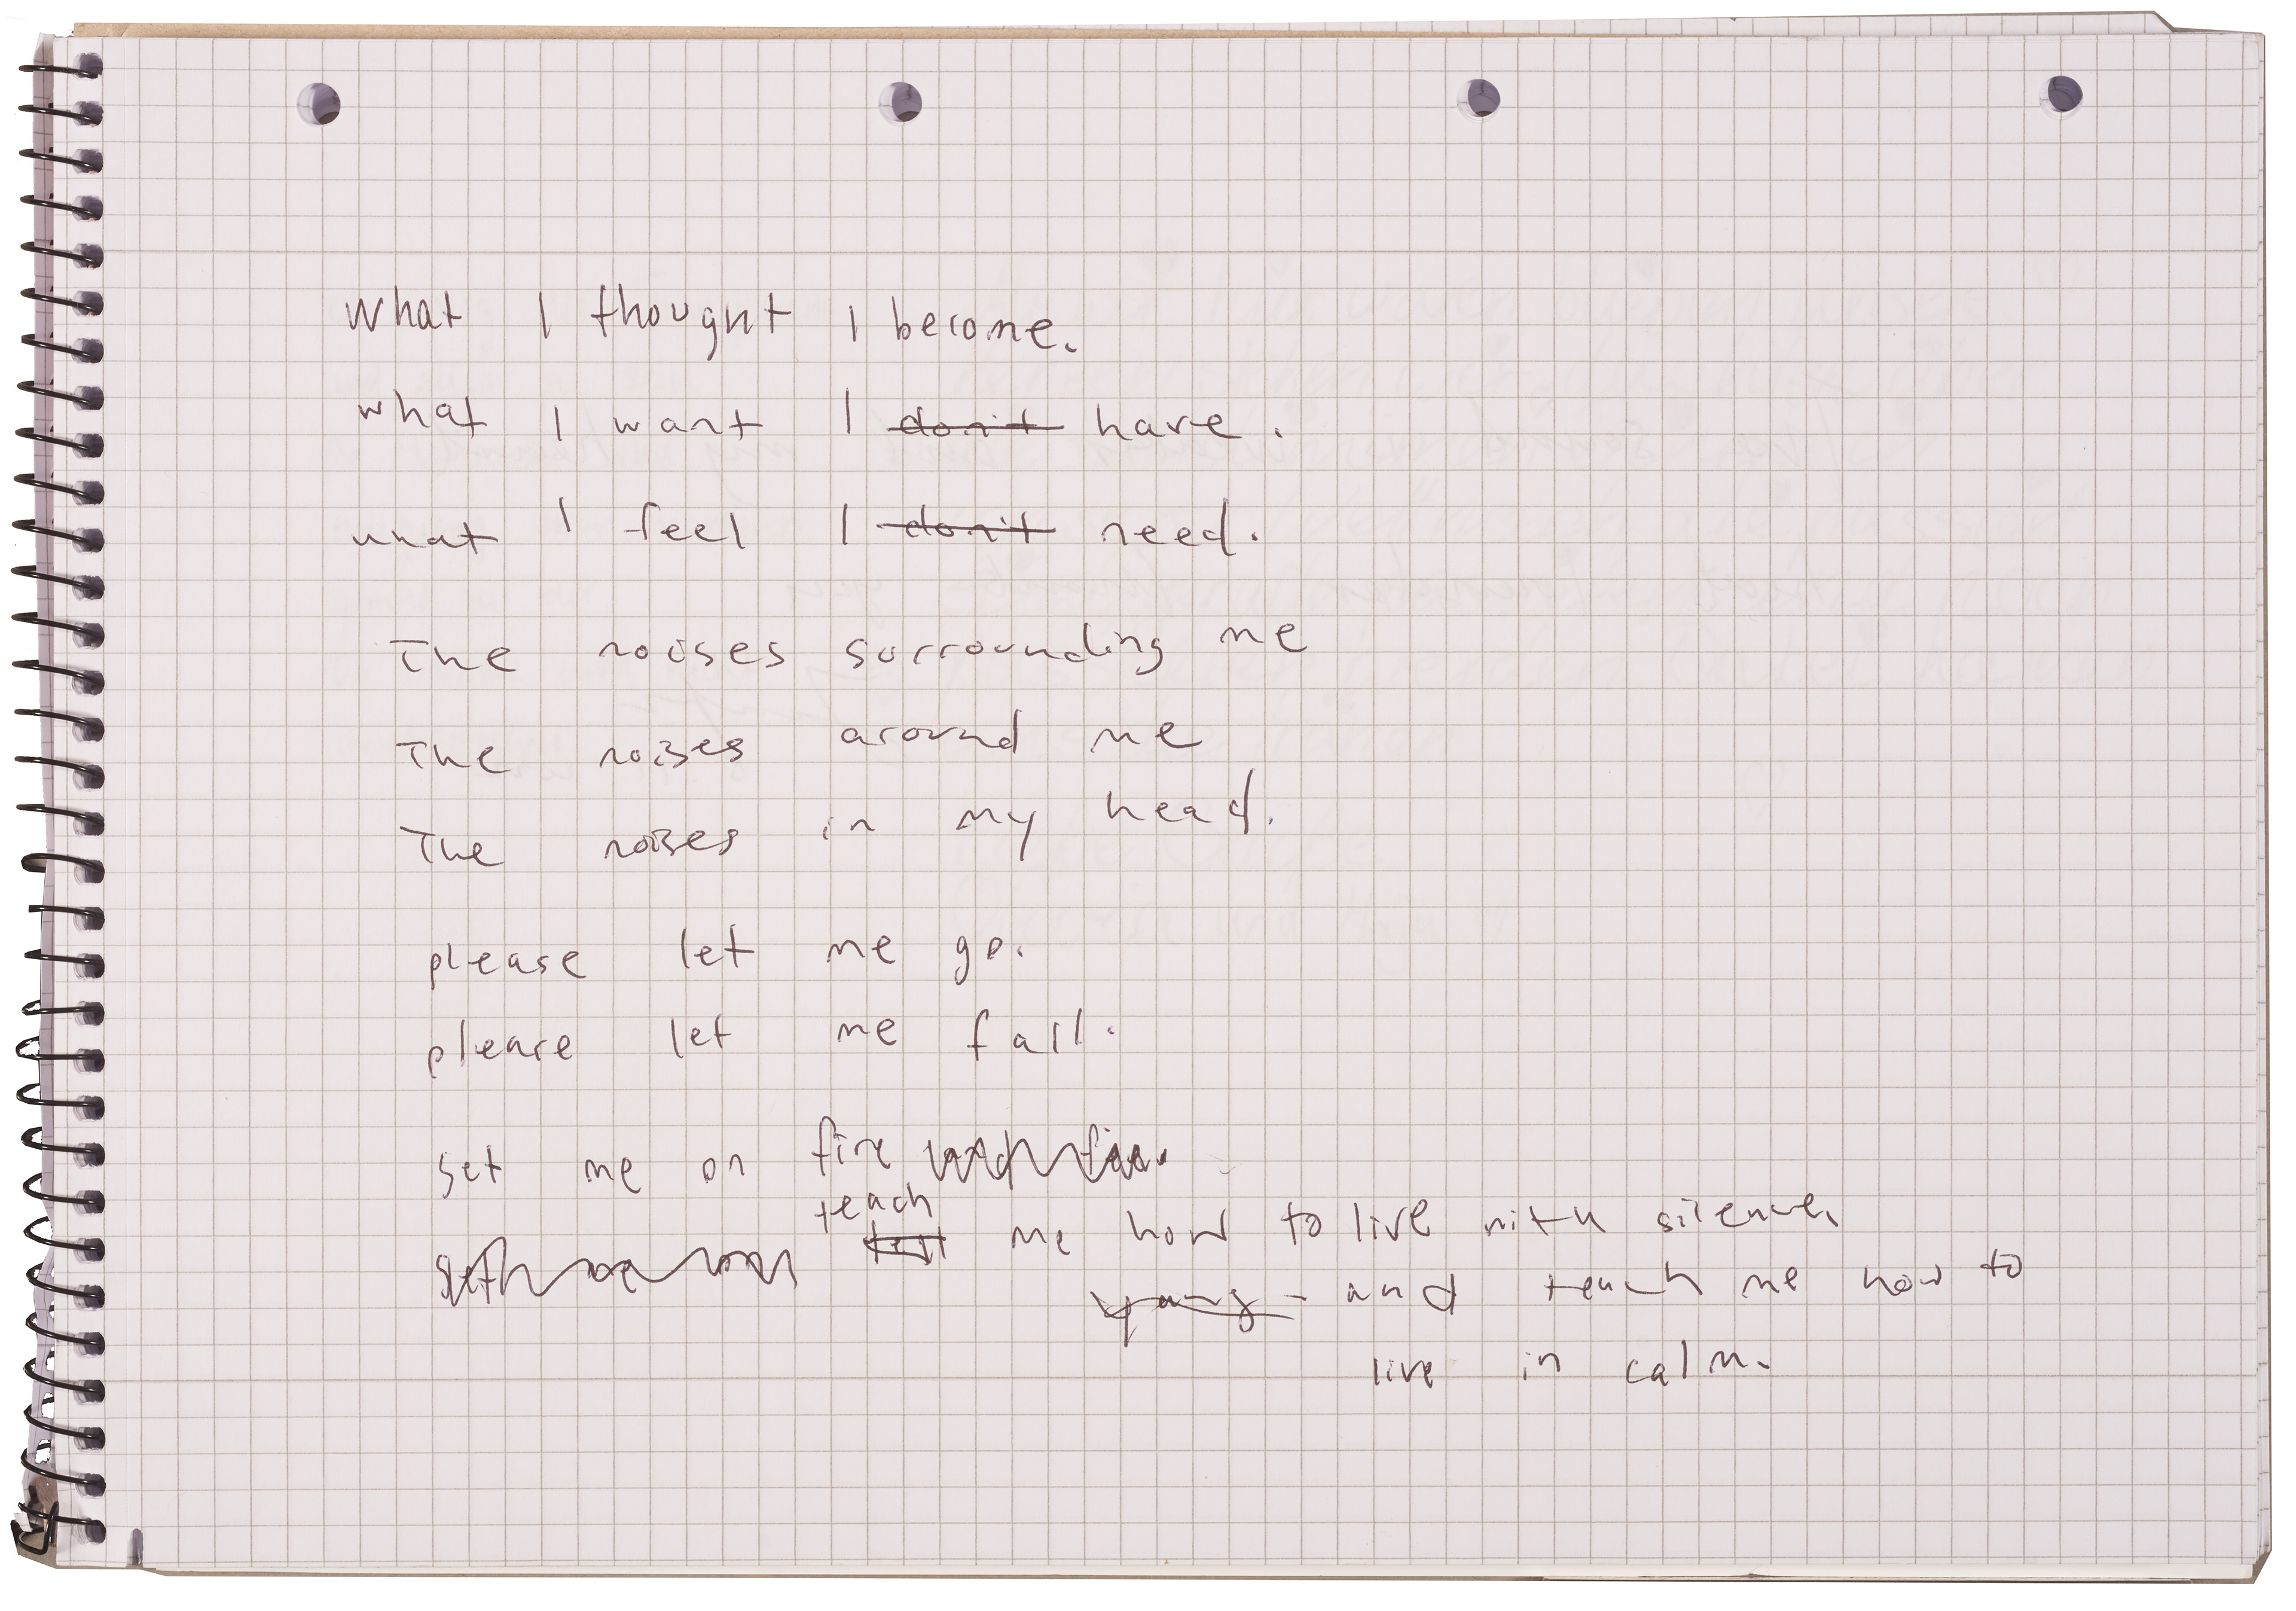 What I thought I become.
what I want I don't have.
what I feel I don't need.
The noises surrounding me
The noises around me
The noises in my head.
please let me go.
please let me fall.
set me on fire
teach
me how to live with silence.
and teach me how to
live in calm.